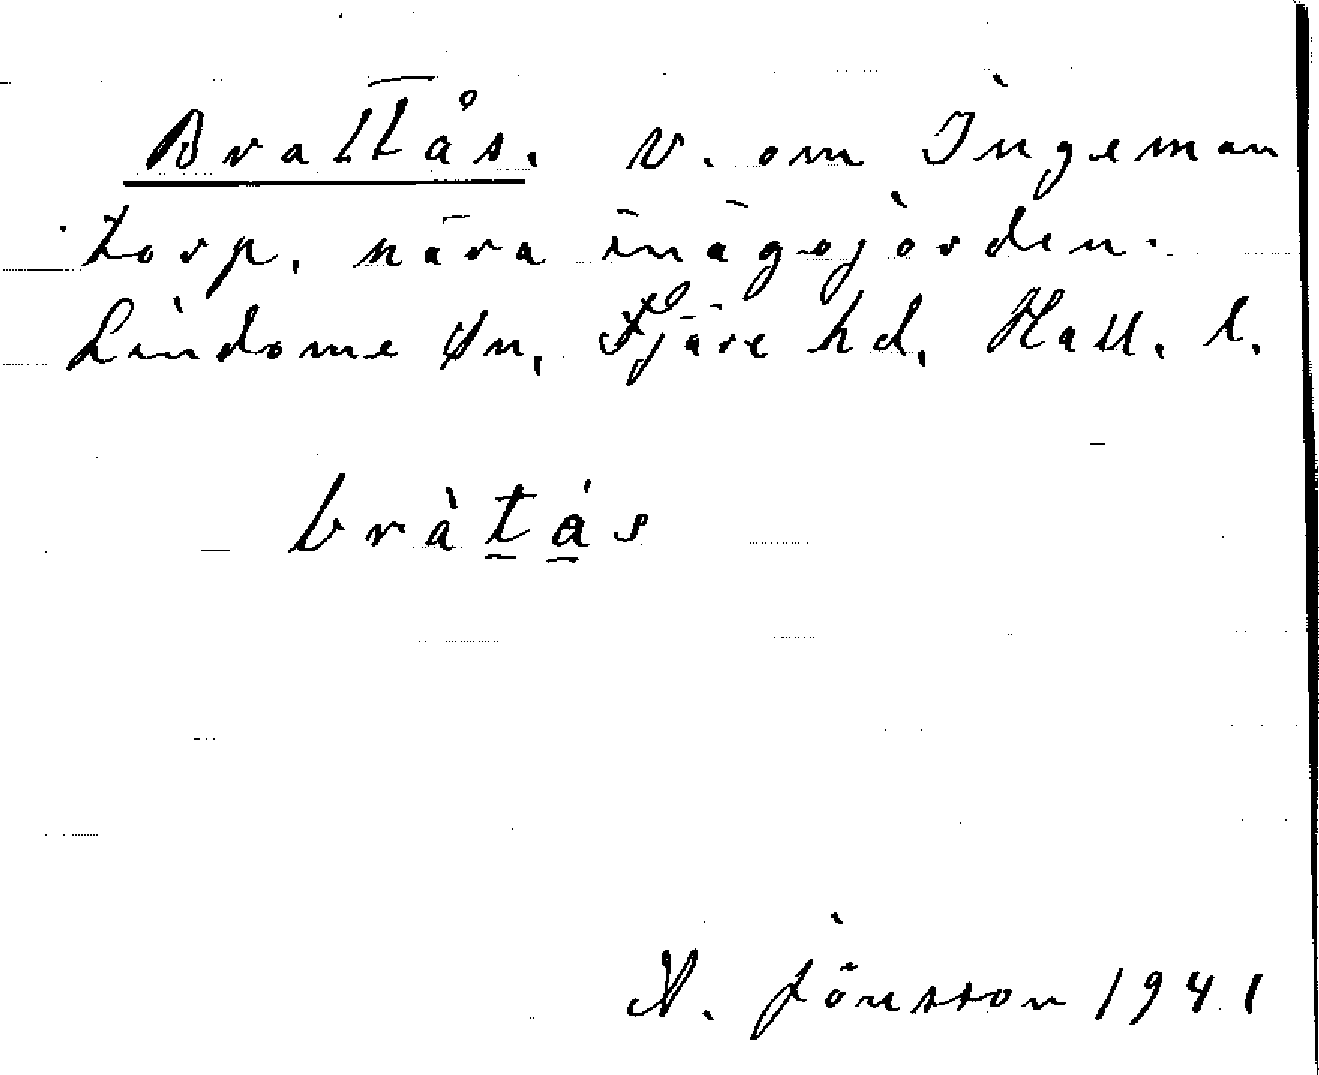 Brattås. V. om Ingeman
torp, nära inägojorden.
Lindome sn, Fjäre hd, Hall. l.
bràtás
A. Jönsson 1941